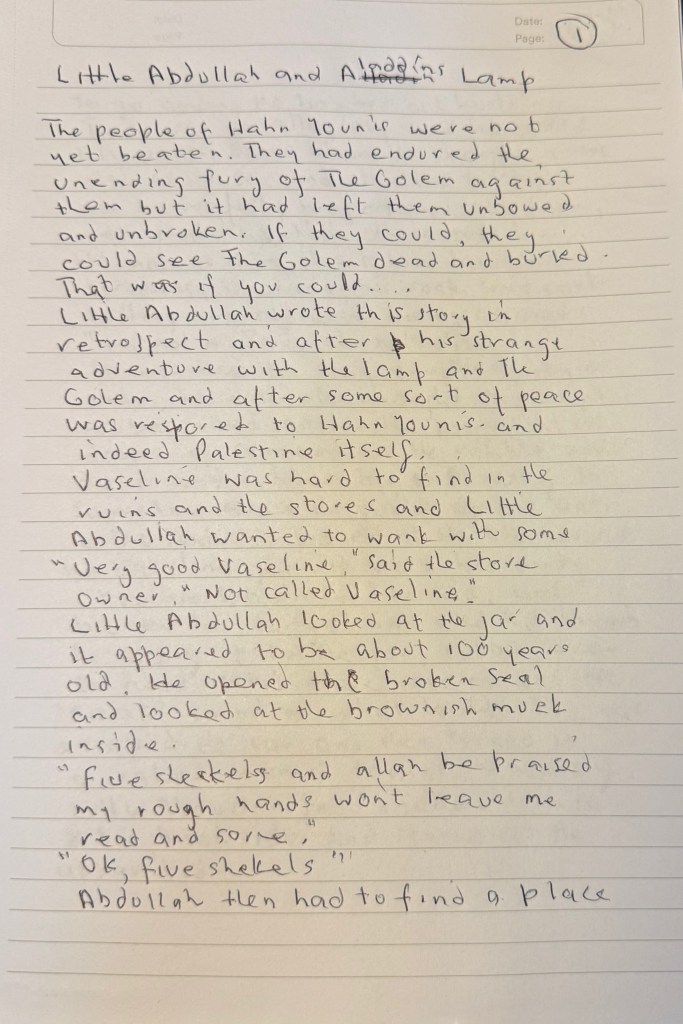 Date:
Page: 1
Little Abdullah and Aladdins Lamp
The people of Hahn Younis were not
yet beaten. They had endured the
unending fury of The Golem against
them but it had left them unbowed
and unbroken. If they could, they
could see The Golem dead and buried.
That was if you could....
Little Abdullah wrote this story in
retrospect and after his strange
adventure with the lamp and The
Golem and after some sort of peace
was respored to Hahn Younis. and
indeed Palestine itself.
Vaseline was hard to find in the
ruins and the stores and Little
Abdullah wanted to wank with some
"Very good Vaseline," said the store
owner, "Not called Vaseline."
Little Abdullah looked at the jar and
it appeared to be about 100 years
old. He opened the broken seal
and looked at the brownish muck
inside.
"Five and allah be praised
my rough hands won't leave me
read and sore,"
"OK, five shekels"
Abdullah then had to find a place